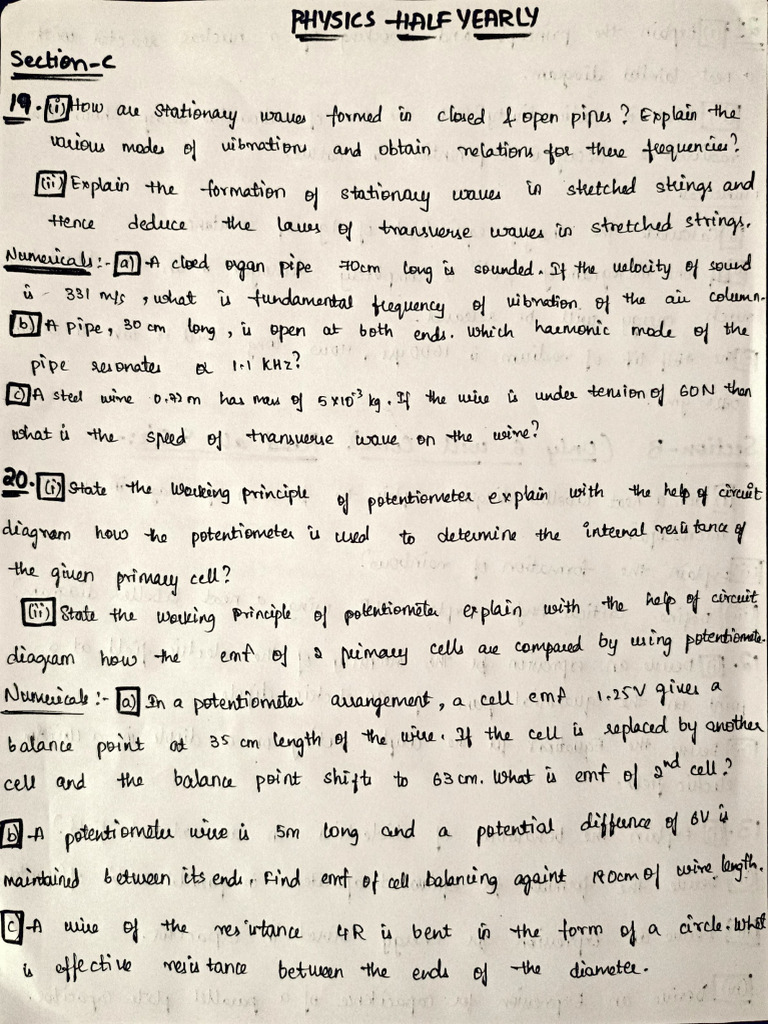 PHYSICS HALF YEARLY
Section-C
19. (i) How are stationary waves formed in closed & open pipes? Explain the
various modes of vibration and obtain relations for there frequencies?
(ii) Explain the formation of stationary waves in stretched strings and
Hence deduce the laws of transverse waves in stretched strings.
Numericals:- a) A closed organ pipe 70cm long is sounded. If the velocity of sound
is 331 m/s, what is fundamental frequency of vibration of the air column.
b) A pipe, 30 cm long, is open at both ends. which harmonic mode of the
pipe resonates a 1.1 KHz?
c) A steel wire 0.72 m has mass of 5×10⁻³ kg. If the wire is under tension of 60N than
what is the speed of transverse wave on the wire?
20. (i) State the working principle of potentiometer explain with the help of circuit
diagram how the potentiometer is used to determine the internal resistance of
the given primary cell?
(ii) State the working principle of potentiometer explain with the help of circuit
diagram how the emf of 2 primary cells are compared by using potentiometer.
Numericals:- a) In a potentiometer arrangement, a cell emf 1.25V gives a
balance point at 35 cm length of the wire. If the cell is replaced by another
cell and the balance point shifts to 63cm. What is emf of 2nd cell?
b) A potentiometer wire is 5m long and a potential diffence of 6V is
maintained between its ends. Find emf of cell balancing against 180cm of wire length.
c) A wire of the resistance 4R is bent in the form of a circle. What
is effective resistance between the ends of the diameter.